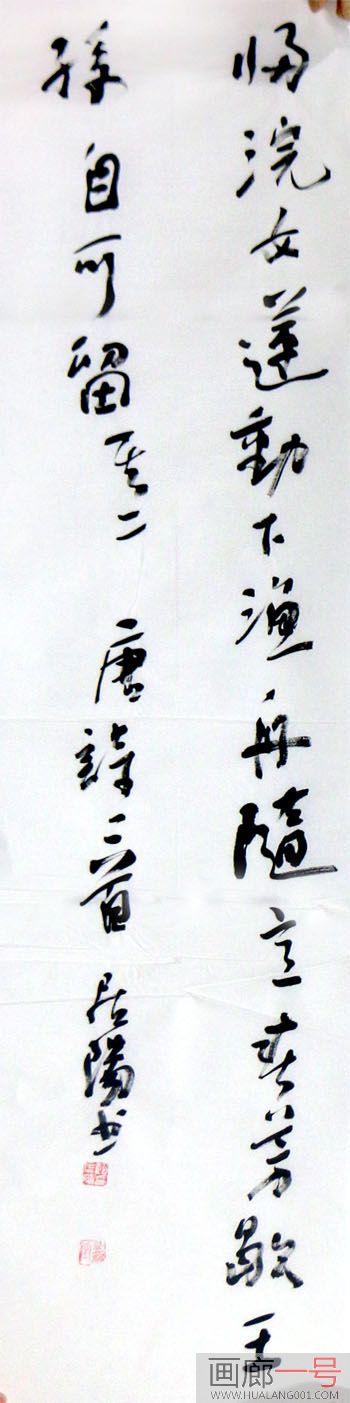 歸浣女蓮動下漁舟隨意春芳歇王
孫自可留其二 唐詩三首 居陽书
画廊一号
WWW.HUALANG001.COM